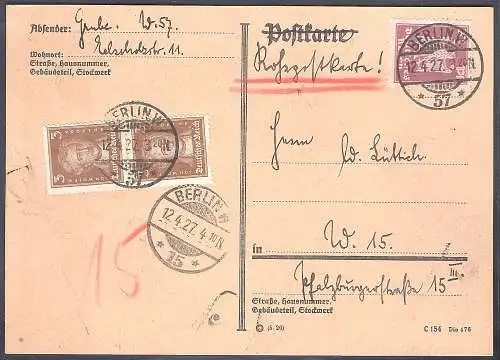 Absender: Grube. W.57.
Wohnort: Zelschostr. 11
Straße, Hausnummer,
Gebäudeteil, Stockwerk
Postkarte
Rohrpostkarte!
BERLIN W
12.4.27.3
* 57 *
BERLIN W
12.4.27.3
57
3
BERLIN W
12.4.27.4-10N
* 15 *
15
Herrn
W. Lüttich
in W. 15.
Pfalzburgerstraße 15 III.
Straße, Hausnummer,
Gebäudeteil, Stockwerk
(5. 26)
C 154 Din 476